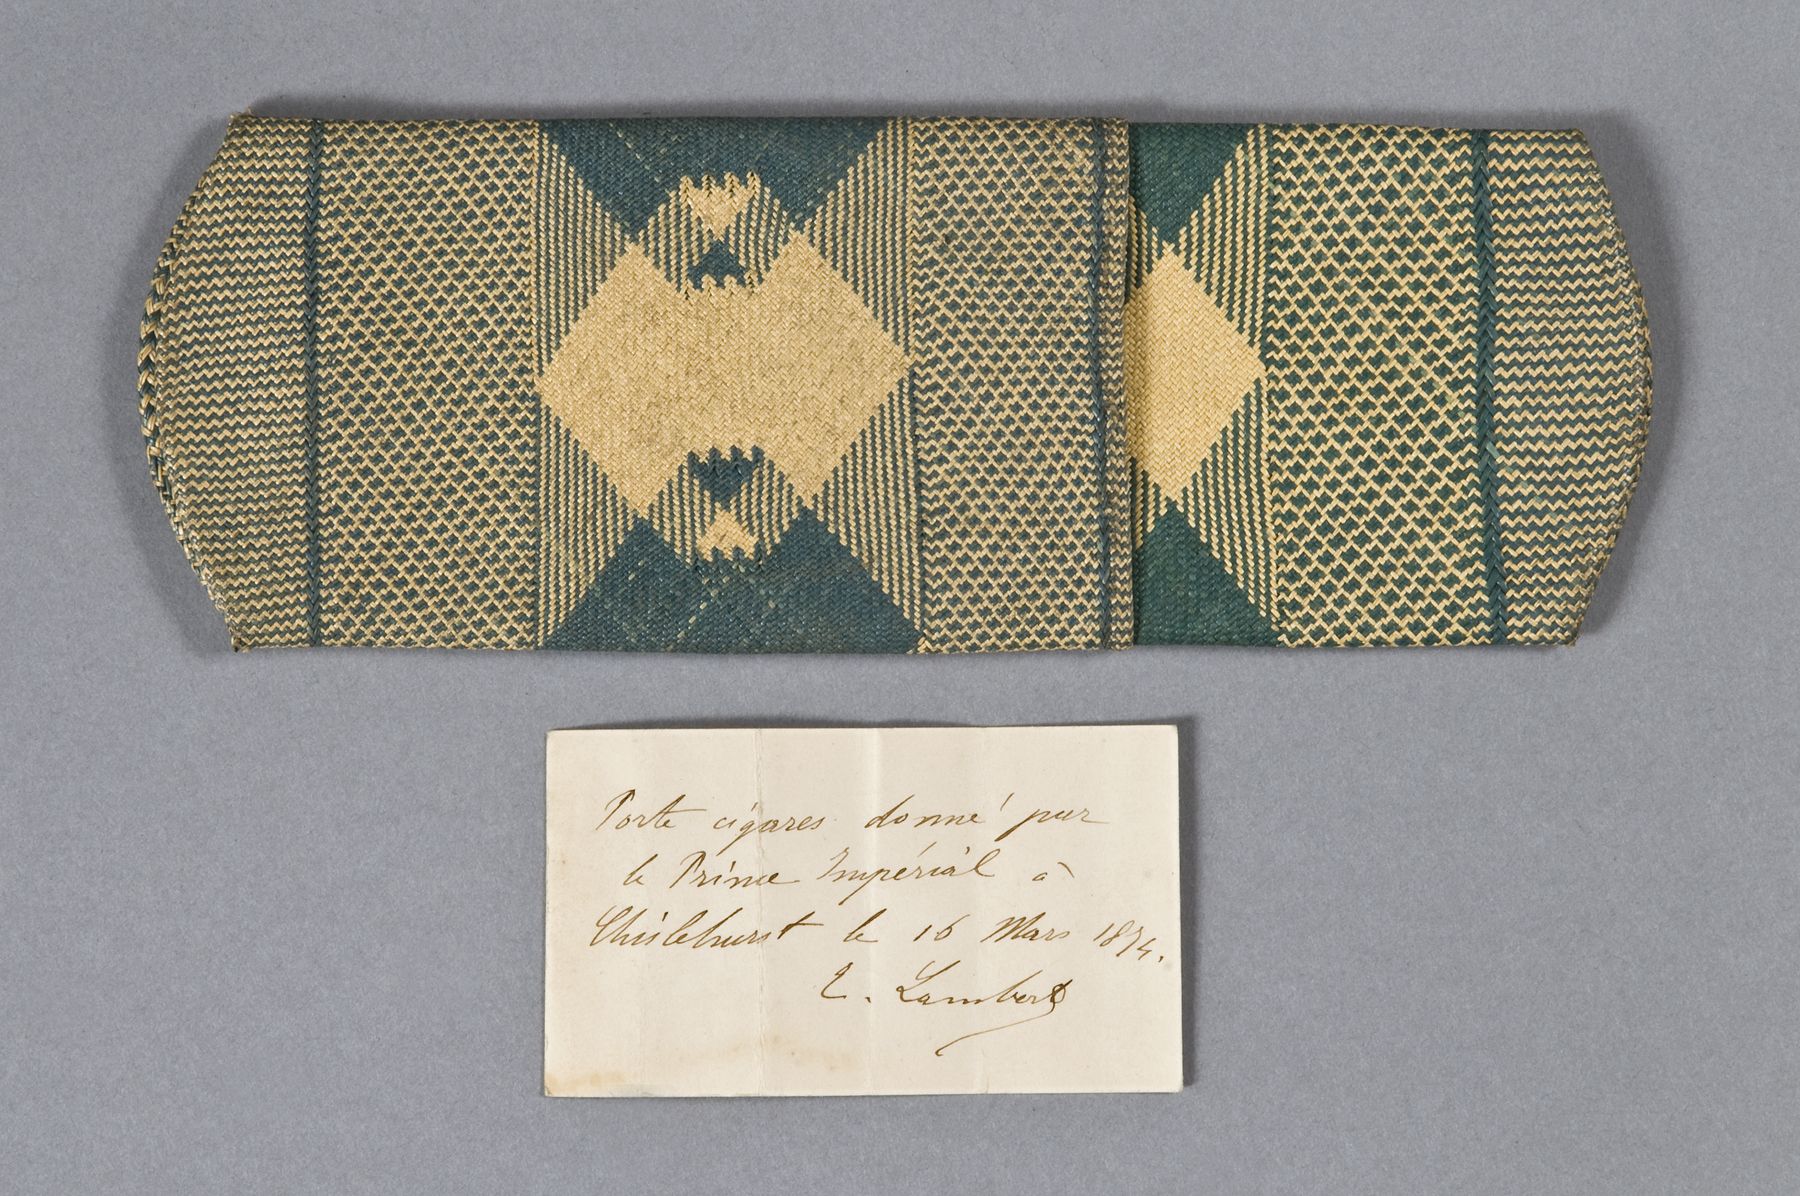 Porte cigares donné par
le Prince Impérial à
Chislehurst le 16 Mars 1874.
E. Lambert